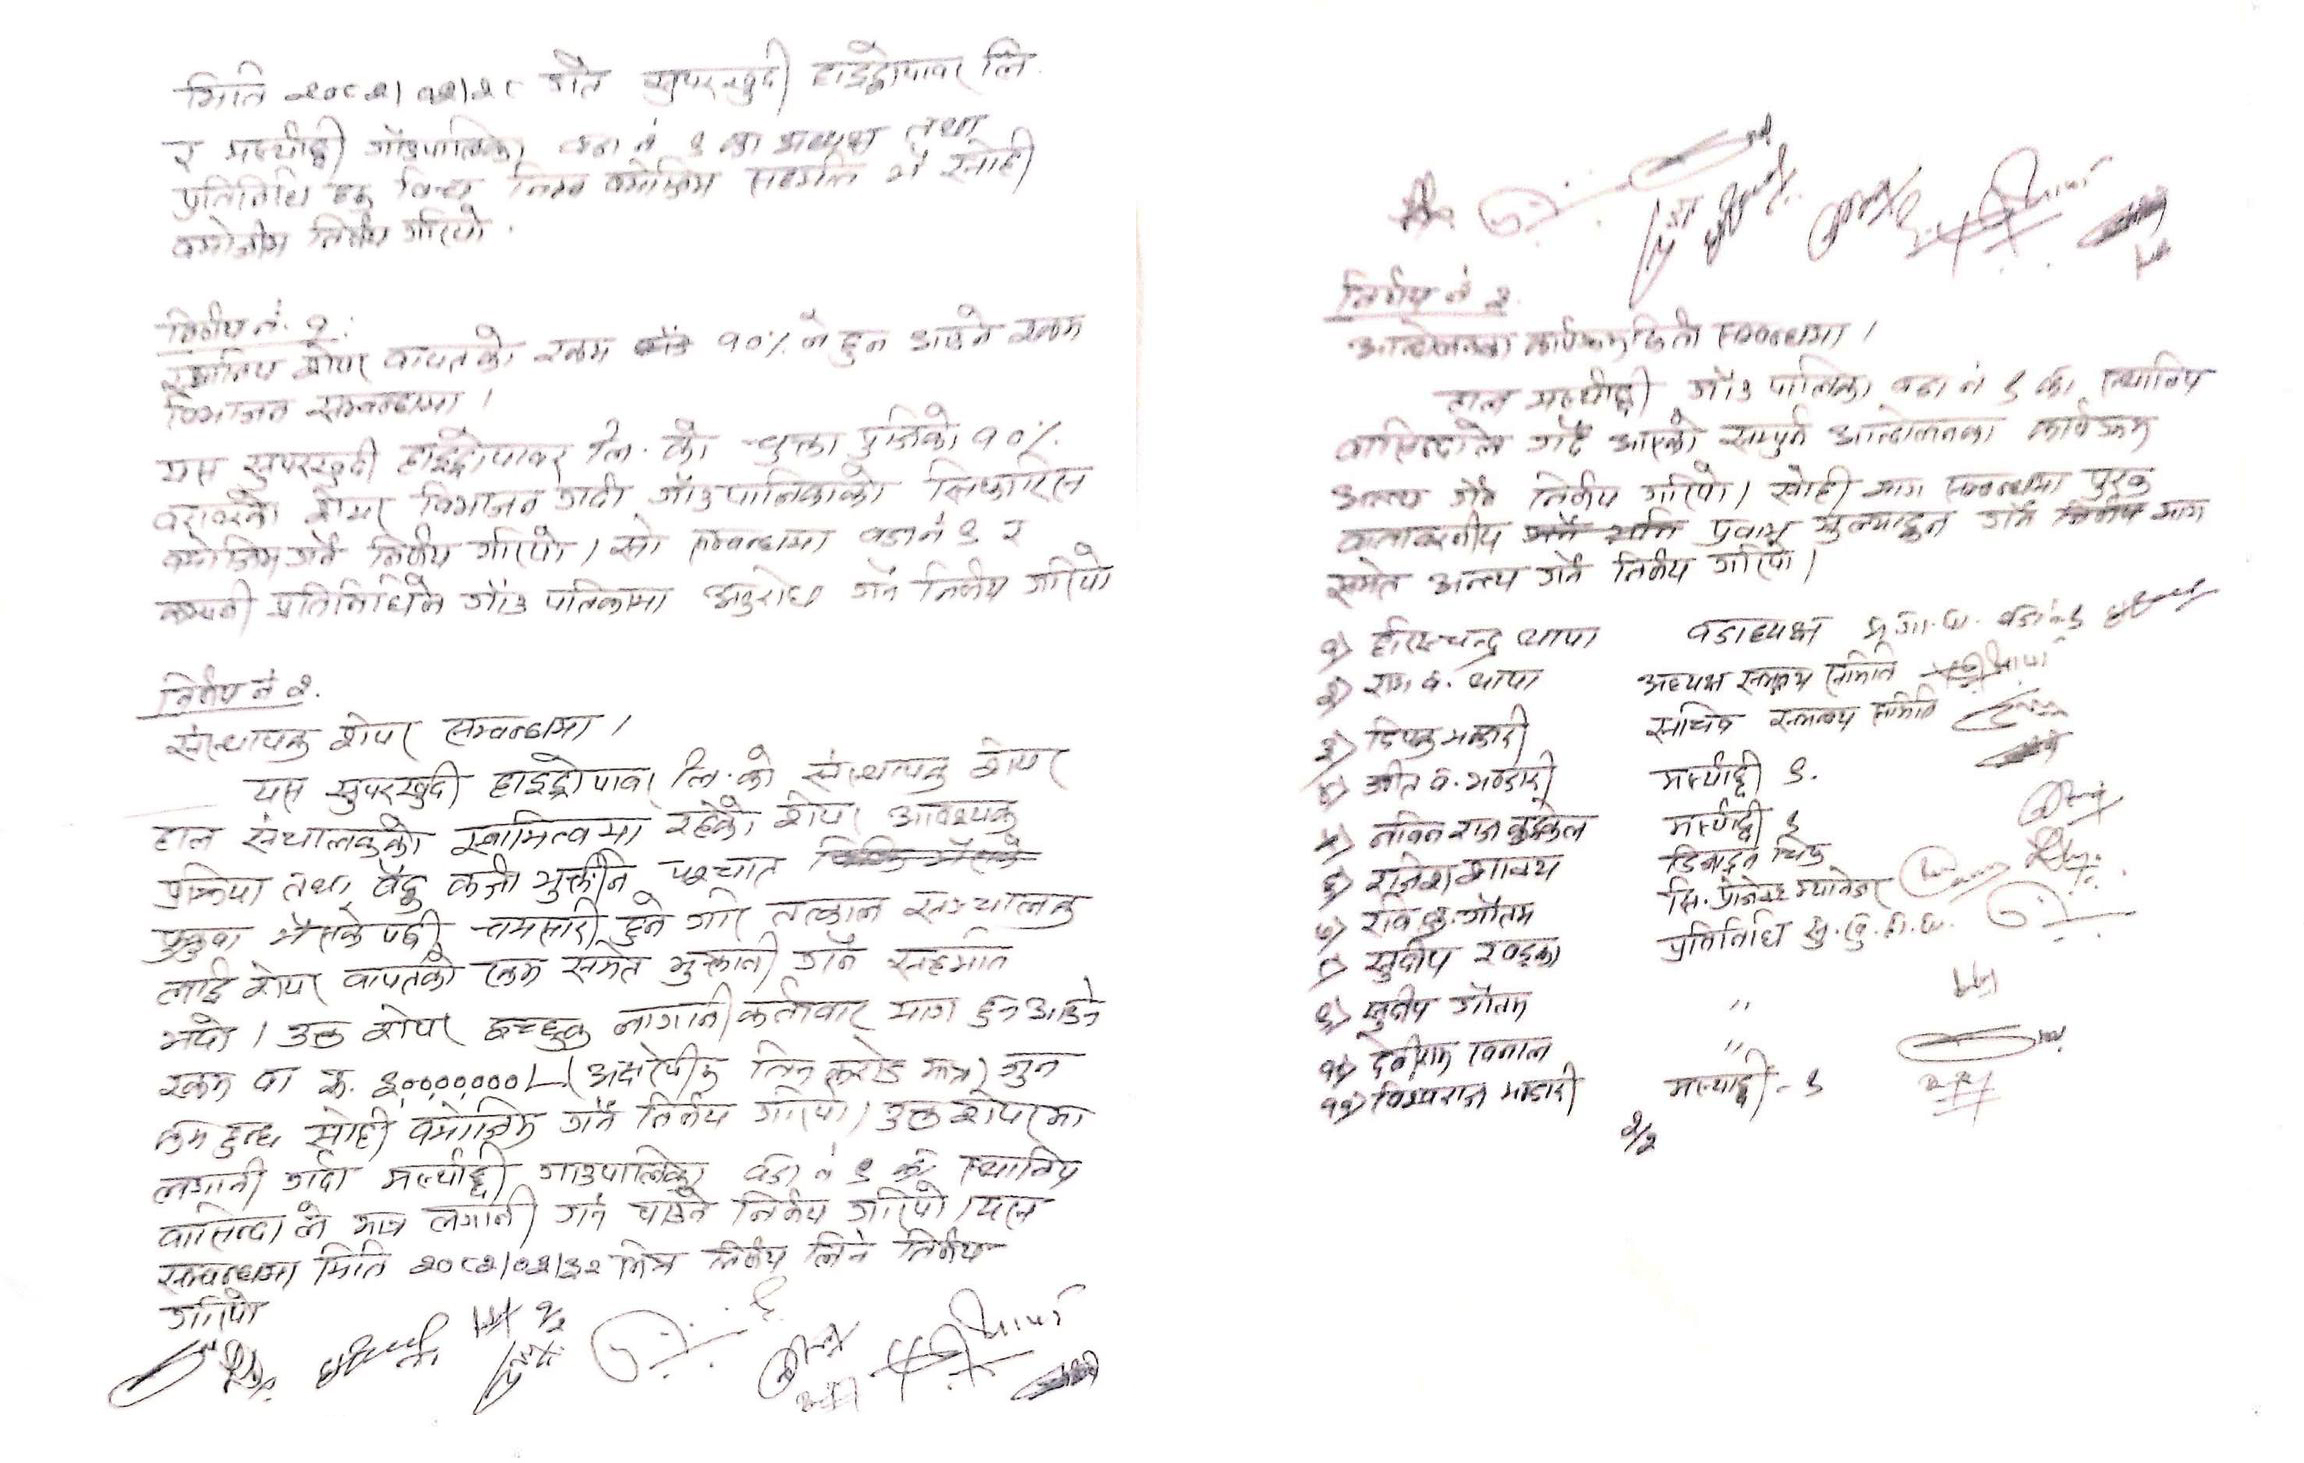 मिति २०८२।०२।२८ गते सुपरखुदी हाइड्रोपावर लि.
र मर्स्याङ्दी गाँउपालिका वडा नं ९ का अध्यक्ष तथा
प्रतिनिधि हरु विच निम्न बमोजिम सहमति भै सोही
बमोजिम निर्णय गरियो.
निर्णय नं. १:
स्थानिय शेयर वापतको रकम १०% ले हुन आउने रकम
विभाजन सम्बन्धमा ।
यस सुपरखुदी हाइड्रोपावर लि. को चुक्ता पुजिको १०%
बराबरको शेयर विभाजन गर्दा गाँउपालिकाको सिफारिस
बमोजिम गर्ने निर्णय गरियो । सो सम्बन्धमा वडा नं ९ र
कम्पनी प्रतिनिधिले गाँउ पालिकामा अनुरोध गर्ने निर्णय गरियो
निर्णय नं २.
संस्थापक शेयर सम्बन्धमा ।
यस सुपरखुदी हाइड्रोपावर लि. को संस्थापक शेयर
हाल संचालकको स्वामित्वमा रहेको शेयर आवश्यक
प्रक्रिया तथा बैंक कर्जा भुक्तानि पश्चात
फुकुवा भैसके पछी नामसारी हुने गरि तत्काल सञ्चालक
लाई शेयर वापतको रकम समेत भुक्तानी गर्ने सहमति
भयो । उक्त शेयर इच्छुक लगानीकर्ताबाट माग हुन आउने
रकम वा रू. ३००००००० ।- (अक्षेरुपि तिन करोड मात्र) जुन
कम हुन्छ सोही बमोजिम गर्ने निर्णय गरियो । उक्त शेयरमा
लगानी गर्दा मर्स्याङ्दी गाउपालिका वडा नं ९ को स्थानिय
वासिन्दा ले मात्र लगानी गर्न पाउने निर्णय गरियो । यस
सम्बन्धमा मिति २०८२।०२।३२ भित्र निर्णय लिने निर्णय
गरियो
निर्णय नं ३.
आन्दोलनका कार्यक्रम फिर्ता सम्बन्धमा ।
हाल मर्स्याङ्दी गाँउ पालिका वडा नं ९ का स्थानिय
वासिन्दाले गर्दै आएको सम्पुर्ण आन्दोलनका कार्यक्रम
अन्त्य गर्ने निर्णय गरियो । सोही माग सम्बन्धमा पुरक
वातावरणीय प्रभाव मुल्याङ्कन गर्ने माग
समेत अन्त्य गर्ने निर्णय गरियो ।
१) हरिश्चन्द्र थापा वडाध्यक्ष म.गा.पा. वडा नं ९
२) राम ब. थापा अध्यक्ष समन्वय समिति
३) दिपक भण्डारी सचिव समन्वय समिति
४) जीत ब. भण्डारी मर्स्याङ्दी ९.
५) नविन राज कुइकेल मर्स्याङ्दी ९
६) राजेश शाक्य डिजाइन चिफ
७) रवि कु. गौतम सि. प्रोजेक्ट म्यानेजर
८) सुदीप खड्का प्रतिनिधि सु.खु.हा.पा.
९) सुदीप गौतम ''
१०) देवीराम खनाल ''
११) विश्वराज भण्डारी मर्स्याङ्दी - ९
२/२